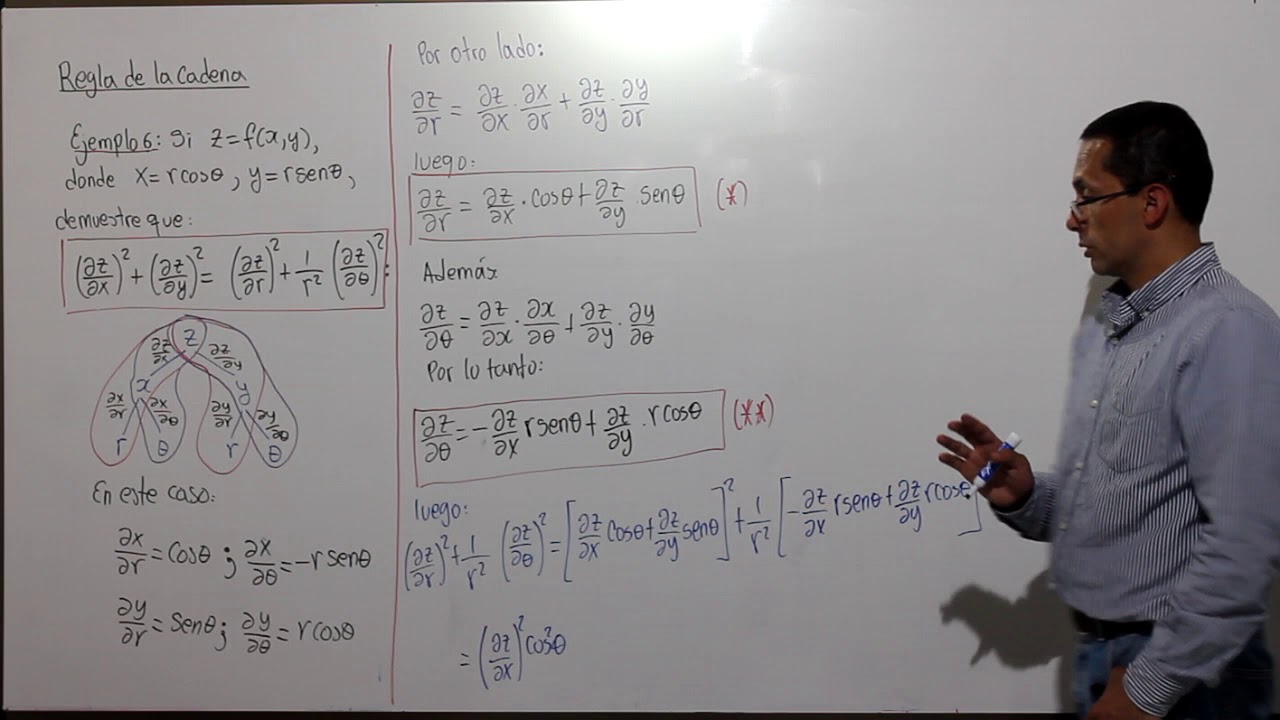 Regla de la Cadena
Ejemplo 6: Si z=f(x,y),
donde x=rcosθ, y=rsenθ,
demuestre que:
(∂z/∂x)² + (∂z/∂y)² = (∂z/∂r)² + 1/r² (∂z/∂θ)² :
z
∂z/∂x ∂z/∂y
x y
∂x/∂r ∂x/∂θ ∂y/∂r ∂y/∂θ
r θ r θ
En este caso:
∂x/∂r = Cosθ ; ∂x/∂θ = -r senθ
∂y/∂r = senθ ; ∂y/∂θ = r cosθ
Por otro lado:
∂z/∂r = ∂z/∂x · ∂x/∂r + ∂z/∂y · ∂y/∂r
luego:
∂z/∂r = ∂z/∂x · cosθ + ∂z/∂y · senθ (*)
Además
∂z/∂θ = ∂z/∂x · ∂x/∂θ + ∂z/∂y · ∂y/∂θ
Por lo tanto:
∂z/∂θ = -∂z/∂x rsenθ + ∂z/∂y · rcosθ (**)
luego:
(∂z/∂r)² + 1/r² (∂z/∂θ)² = [∂z/∂x cosθ + ∂z/∂y senθ]² + 1/r² [-∂z/∂x rsenθ + ∂z/∂y rcosθ]
= (∂z/∂x)² cos²θ